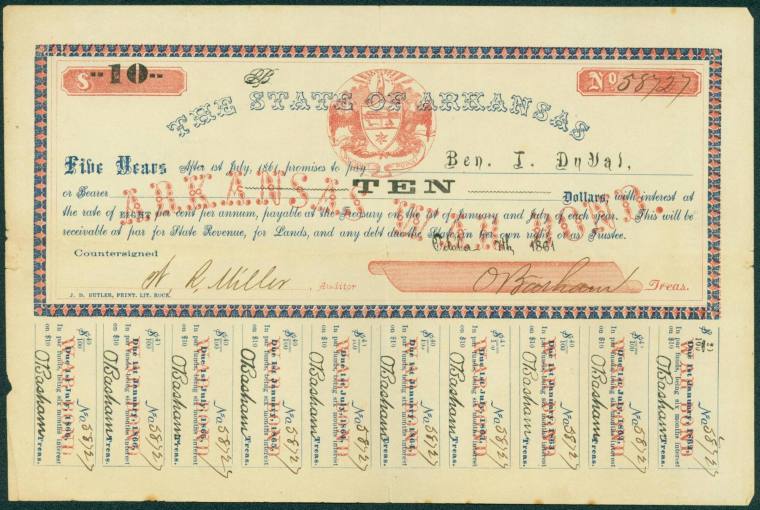 $ --10--
No 58727
THE STATE OF ARKANSAS
Five Years After 1st July, 1861, promises to pay Ben. T. DuVal.
or Bearer TEN Dollars, with interest at
the rate of EIGHT per cent per annum, payable at the Treasury on the 1st of January and July of each year. This will be
receivable at par for State Revenue, for Lands, and any debt due the State, in her own right or as Trustee.
ARKANSAS WAR BOND
October 1861
Countersigned
W. R. Miller, Auditor
O Basham Treas.
J. D. BUTLER, PRINT. LIT. ROCK.
$ 40/100 No 58727
Due 1st July, 1866.
In par funds, being six months interest
on $10 O Basham Treas.
$ 40/100 No 58727
Due 1st January,
In par funds, being six months interest
on $10 O Basham Treas.
$ 40/100 No 58727
Due 1st July,
In par funds, being six months interest
on $10 O Basham Treas.
$ 40/100 No 58727
Due 1st January,
In par funds, being six months interest
on $10 O Basham Treas.
$ 40/100 No 58727
Due 1st July,
In par funds, being six months interest
on $10 O Basham Treas.
$ 40/100 No 58727
Due 1st January,
In par funds, being six months interest
on $10 O Basham Treas.
$ No 58727
Due 1st July,
In par funds, being six months interest
on $10 O Basham Treas.
$ No 58727
Due 1st January,
In par funds, being six months interest
on $10 O Basham Treas.
$ No 58727
Due 1st July,
In par funds, being six months interest
on $10 O Basham Treas.
$ No 58727
Due 1st January,
In par funds, being six months interest
on $10 O Basham Treas.